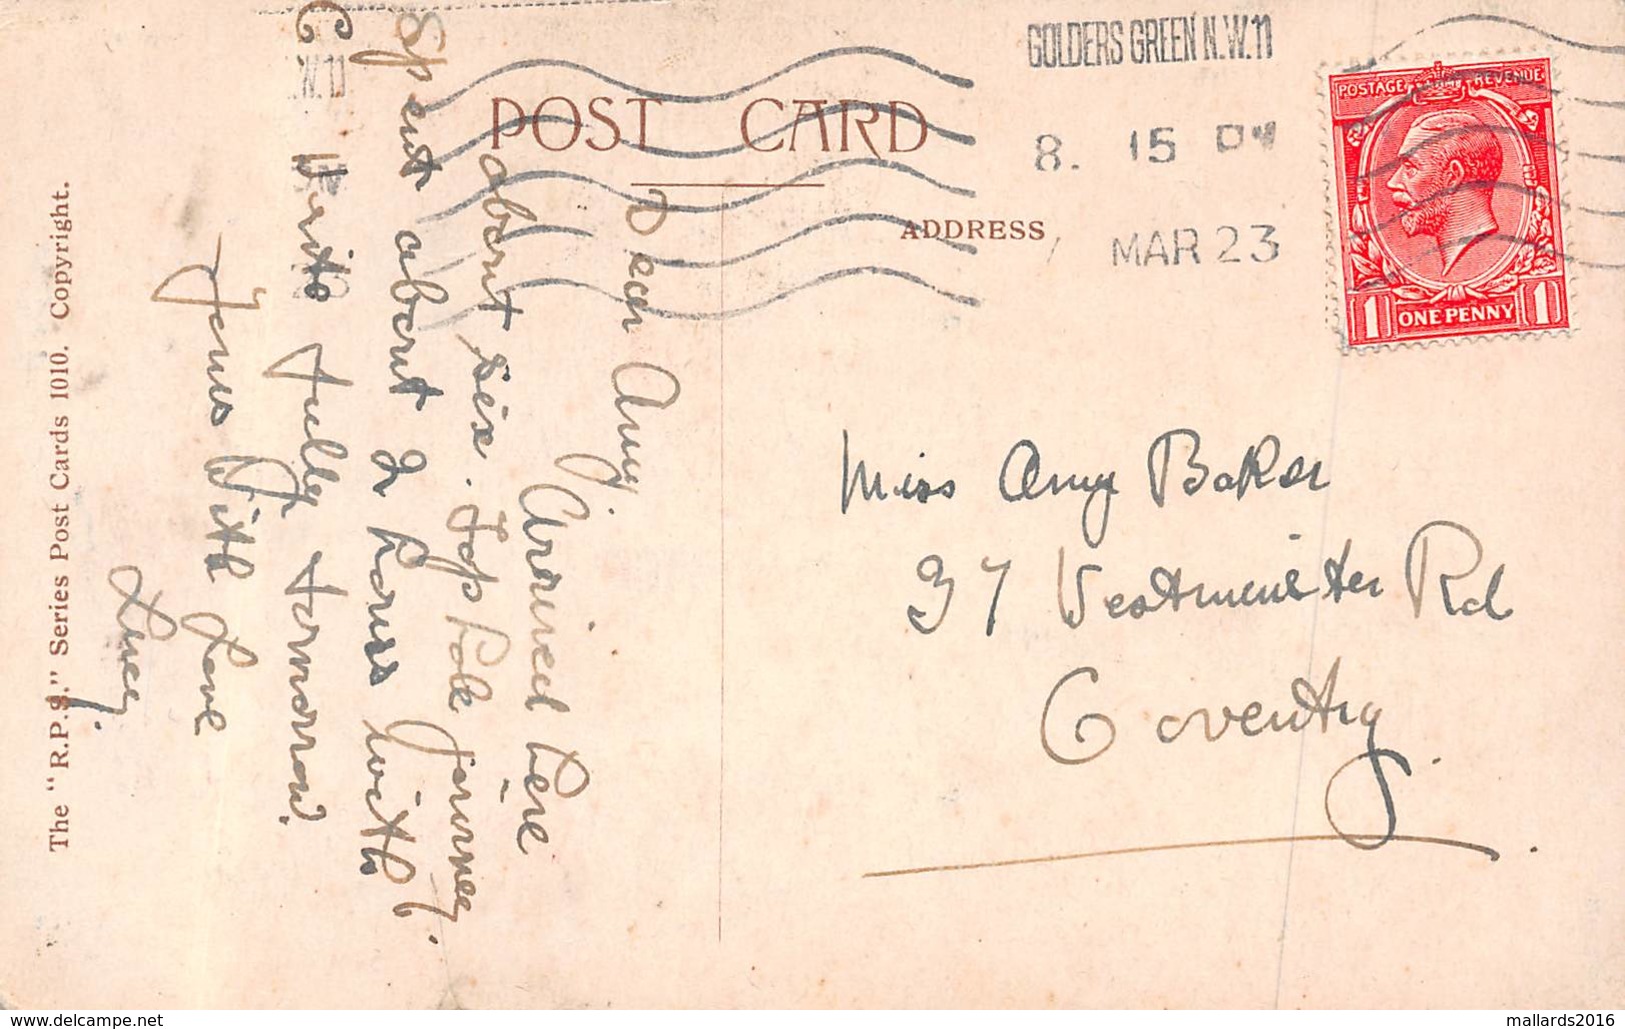 POST CARD
ADDRESS
GOLDERS GREEN N.W.11
8. 15 PM
MAR 23
POSTAGE REVENUE
1 ONE PENNY 1
Dear Amy
Arrived here
about six. Top hole journey.
Spent about 2 hours with
C. Write fully tomorrow.
Yours With Love
Lucy.
Miss Amy Baker
37 Westminster Rd
Coventry.
The "R.P.S." Series Post Cards 1010. Copyright.
delcampe.net
mallards2016